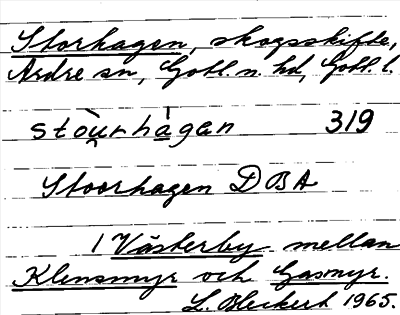 Storhagen, skogsskifte,
Ardre sn, Gotl. n. hd, Gotl. l.
stòu̯rhá̱gen 319
Stoorhagen DBA
I Västerby mellan
Klensmyr och Gasmyr.
L. Bleckert 1965.